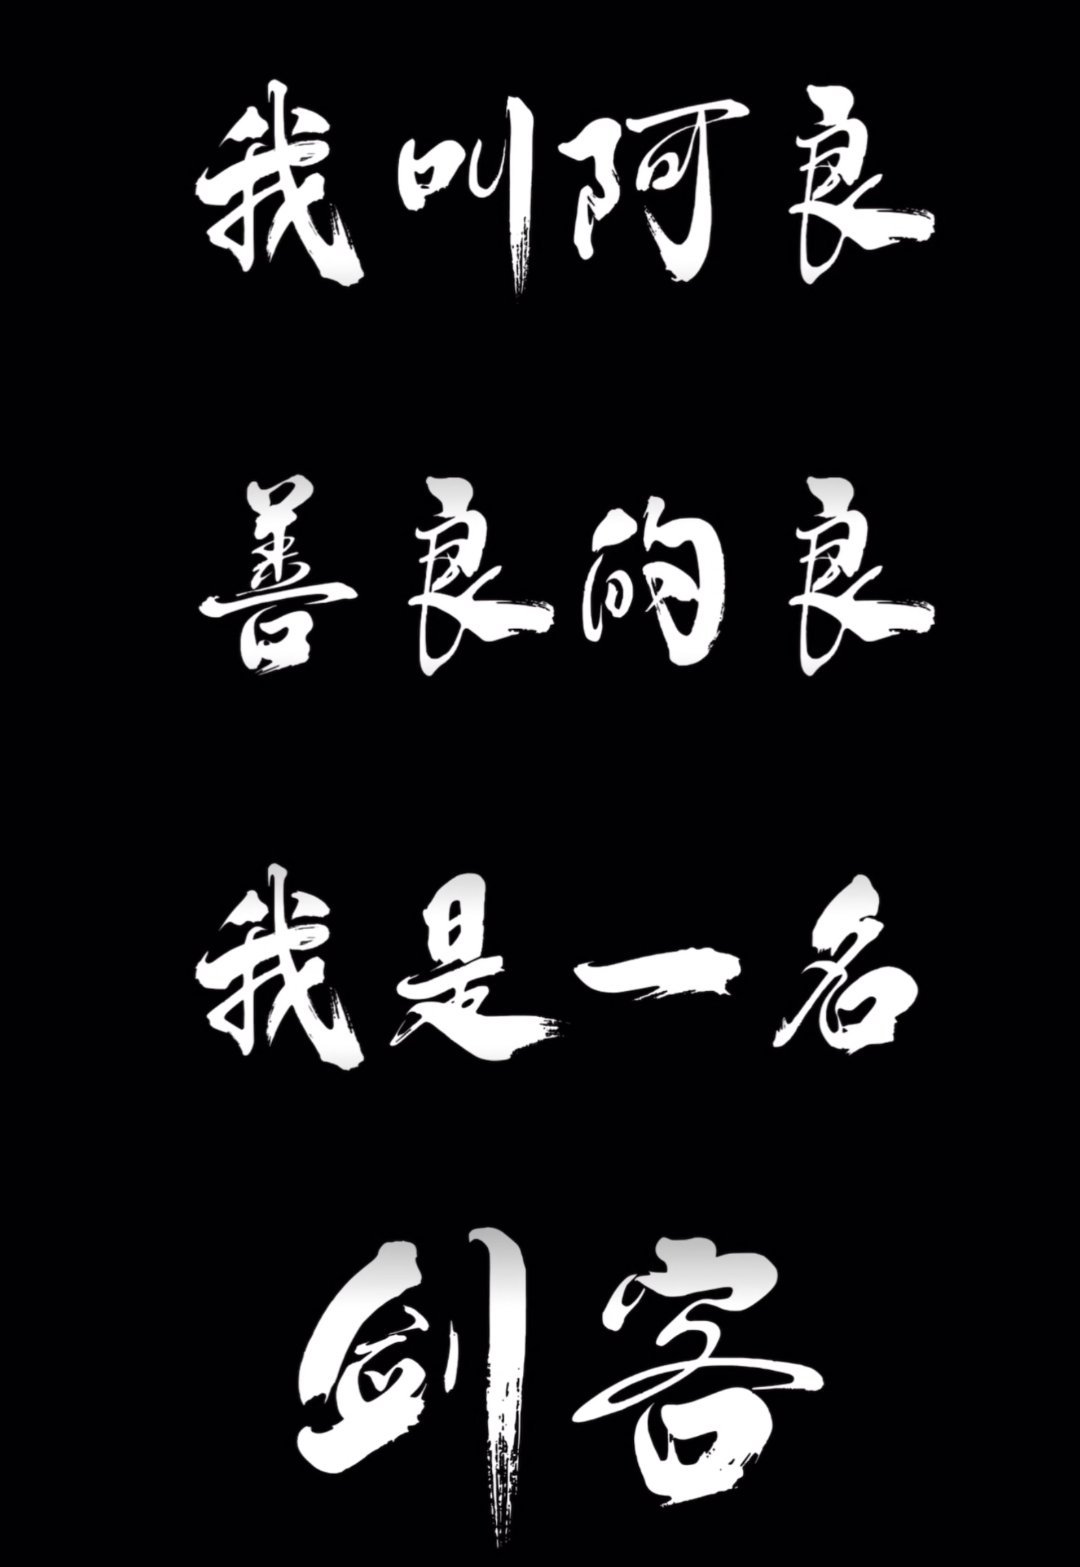 我叫阿良
善良的良
我是一名
剑客